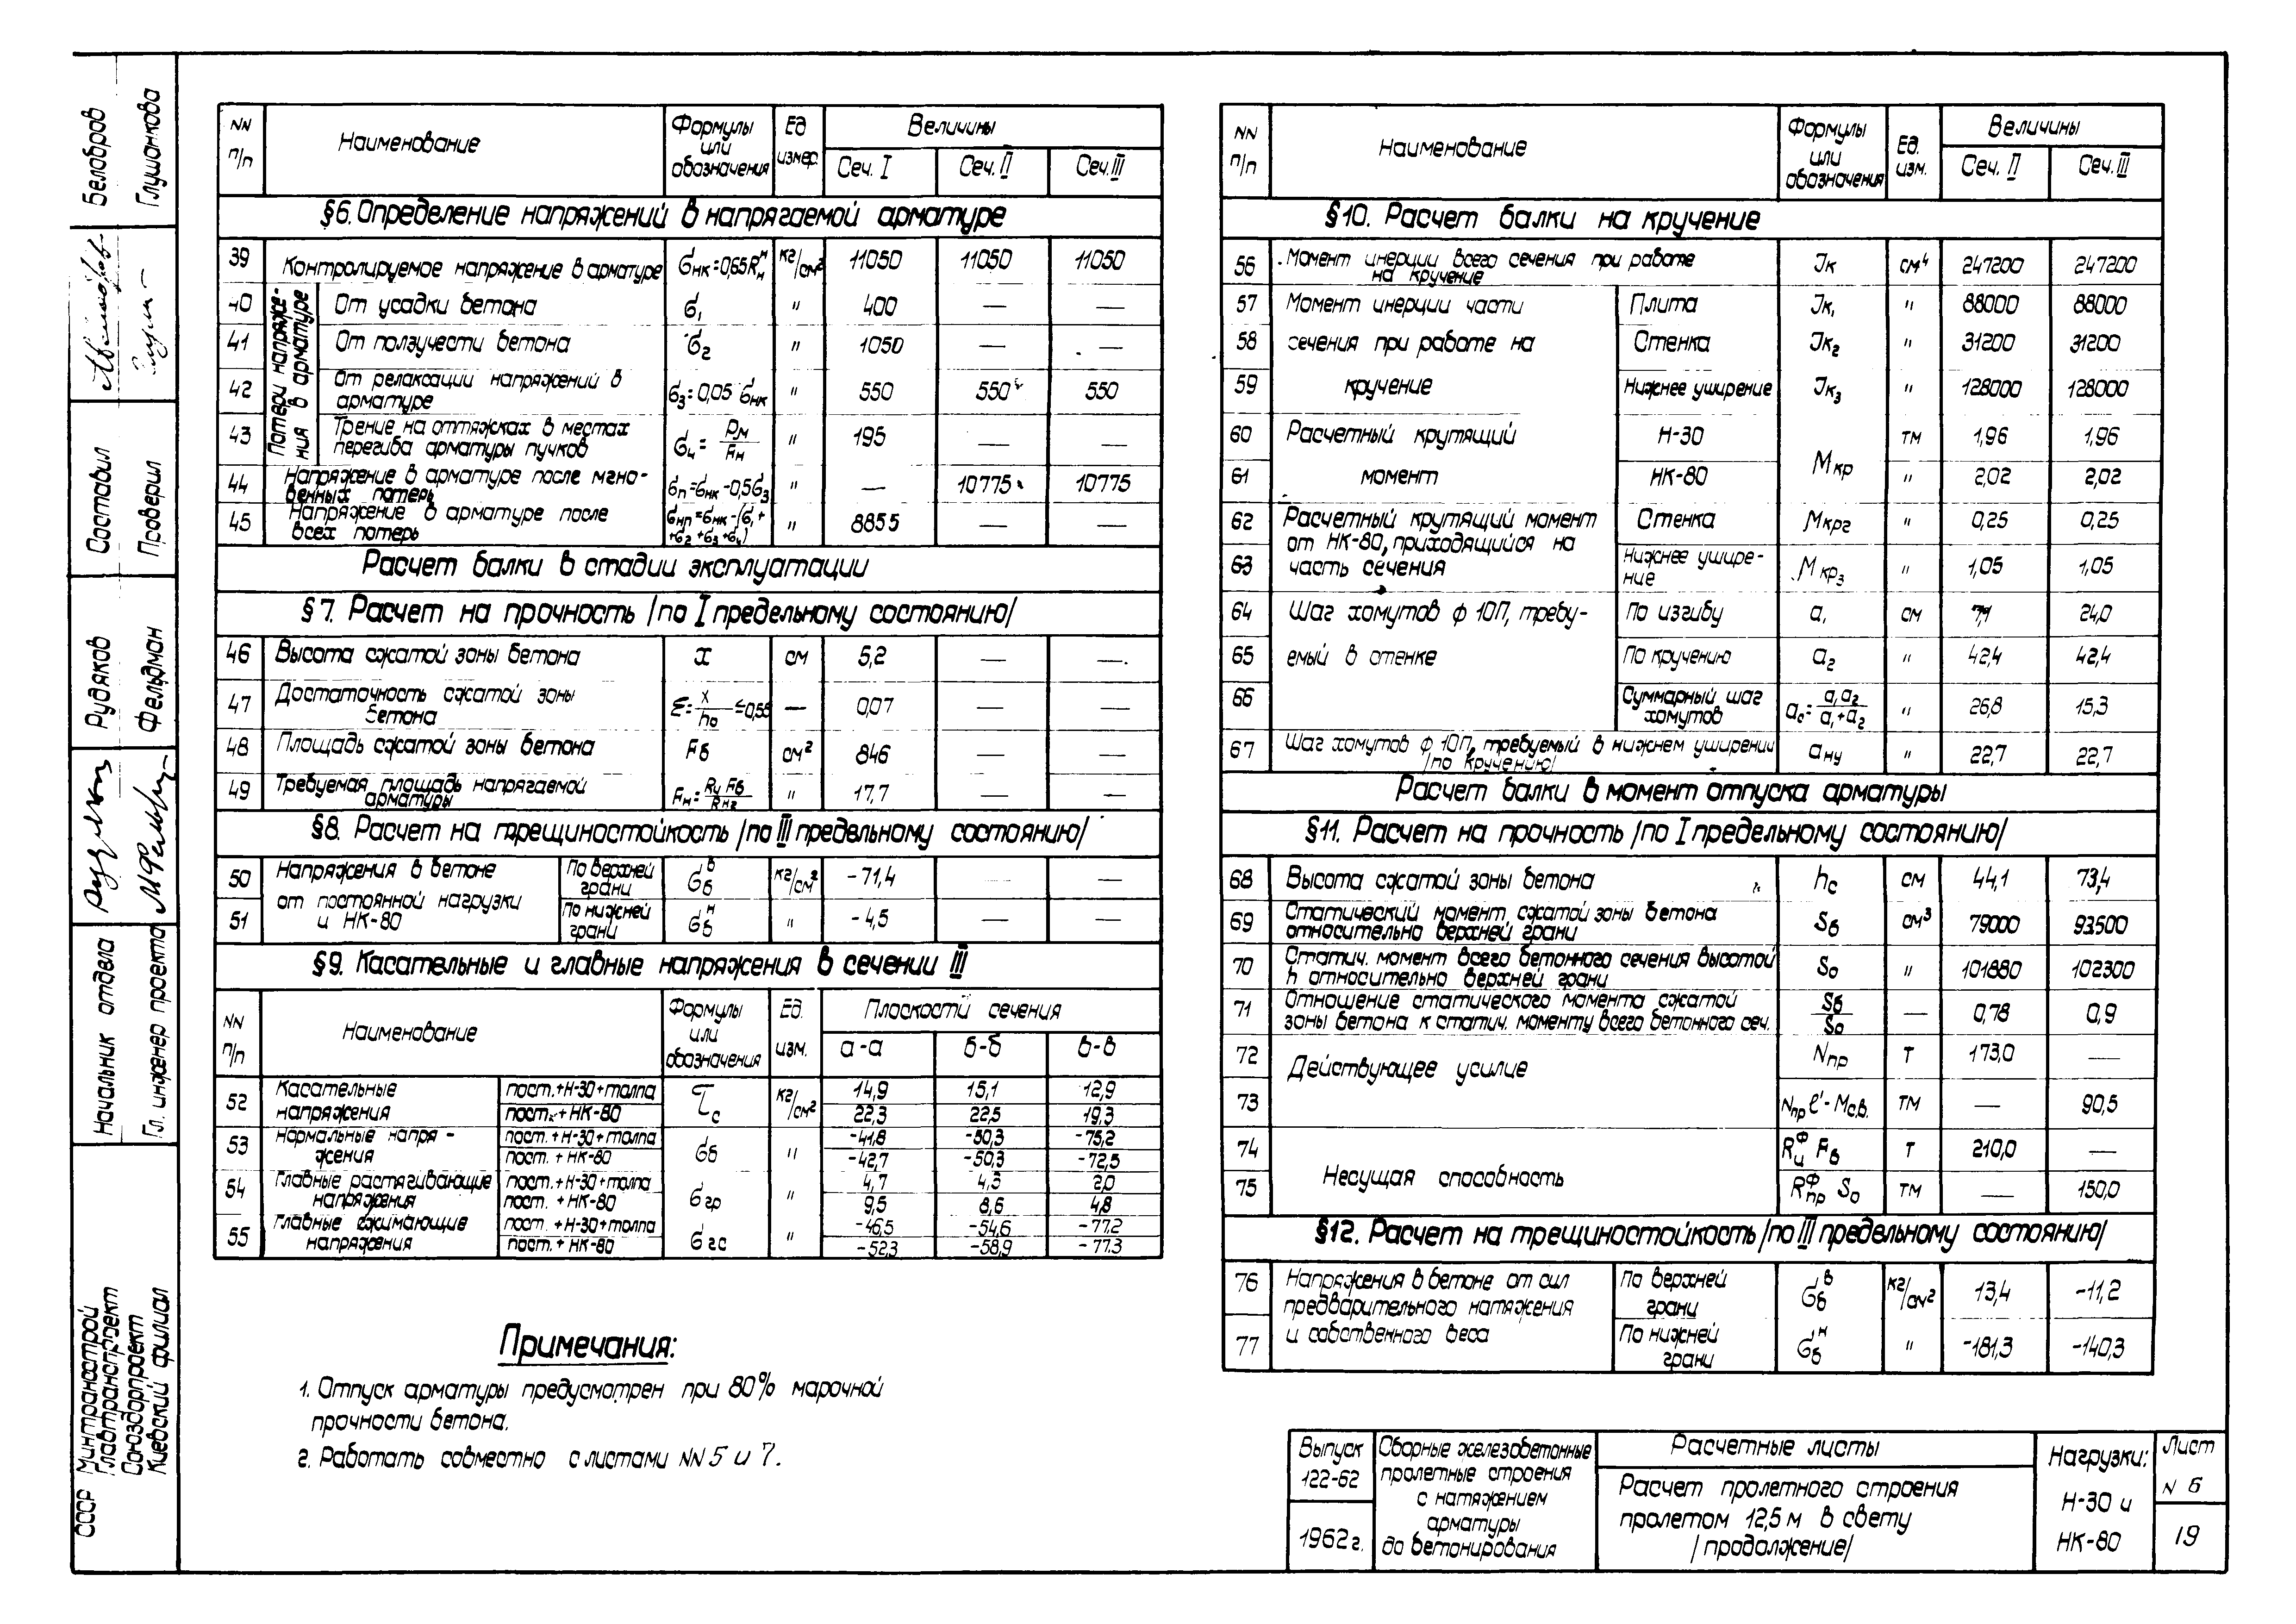 Белобров
Глушанкова
Составил
Проверил
Рудяков
Фельдман
Начальник отдела
Гл. инженер проекта
СССР Минтрансстрой
Главтранспроект
Союздорпроект
Киевский филиал
NN п/п | Наименование | Формулы или обозначения | Ед измер. | Величины
Сеч. I | Сеч. II | Сеч. III
§6. Определение напряжений в напрягаемой арматуре
39 | Контролируемое напряжение в арматуре | σнк=0,65Rнᴴ | кг/см² | 11050 | 11050 | 11050
Потери напряжения в арматуре
40 | От усадки бетона | σ₁ | " | 400 | — | —
41 | От ползучести бетона | σ₂ | " | 1050 | — | —
42 | От релаксации напряжений в арматуре | σ₃=0,05 σнк | " | 550 | 550 | 550
43 | Трение на оттяжках в местах перегиба арматуры пучков | σ₄ = Рм/Fн | " | 195 | — | —
44 | Напряжение в арматуре после мгновенных потерь | σп=σнк-0,5σ₃ | " | — | 10775 | 10775
45 | Напряжение в арматуре после всех потерь | σнп=σнк-(σ₁+ +σ₂+σ₃+σ₄) | " | 8855 | — | —
Расчет балки в стадии эксплуатации
§7. Расчет на прочность /по I предельному состоянию/
46 | Высота сжатой зоны бетона | x | см | 5,2 | — | —
47 | Достаточность сжатой зоны бетона | Ɛ=x/h₀ ≤0,55 | — | 0,07 | — | —
48 | Площадь сжатой зоны бетона | Fб | см² | 846 | — | —
49 | Требуемая площадь напрягаемой арматуры | Fн=Rи Fб/Rн2 | " | 17,7 | — | —
§8. Расчет на трещиностойкость /по III предельному состоянию/
50 | Напряжения в бетоне от постоянной нагрузки и НК-80 | По верхней грани | σбᴮ | кг/см² | -71,4 | — | —
51 | По нижней грани | σбᴴ | " | -4,5 | — | —
§9. Касательные и главные напряжения в сечении III
NN п/п | Наименование | Формулы или обозначения | Ед. изм. | Плоскости сечения
а-а | б-б | в-в
52 | Касательные напряжения | пост.+Н-30+толпа | τс | кг/см² | 14,9 | 15,1 | 12,9
пост.+НК-80 | 22,3 | 22,5 | 19,3
53 | Нормальные напряжения | пост.+Н-30+толпа | σб | " | -41,8 | -50,3 | -75,2
пост.+НК-80 | -42,7 | -50,3 | -72,5
54 | Главные растягивающие напряжения | пост.+Н-30+толпа | σгр | " | 4,7 | 4,3 | 2,0
пост.+НК-80 | 9,5 | 8,6 | 4,8
55 | Главные сжимающие напряжения | пост.+Н-30+толпа | σгс | " | -46,5 | -54,6 | -77,2
пост.+НК-80 | -52,3 | -58,9 | -77,3
Примечания:
1. Отпуск арматуры предусмотрен при 80% марочной
прочности бетона.
2. Работать совместно с листами NN 5 и 7.
NN п/п | Наименование | Формулы или обозначения | Ед. изм. | Величины
Сеч. II | Сеч. III
§10. Расчет балки на кручение
56 | Момент инерции всего сечения при работе на кручение | Jк | см⁴ | 247200 | 247200
57 | Момент инерции части | Плита | Jк₁ | " | 88000 | 88000
58 | сечения при работе на | Стенка | Jк₂ | " | 31200 | 31200
59 | кручение | Нижнее уширение | Jк₃ | " | 128000 | 128000
60 | Расчетный крутящий | Н-30 | Мкр | тм | 1,96 | 1,96
61 | момент | НК-80 | " | 2,02 | 2,02
62 | Расчетный крутящий момент от НК-80, приходящийся на часть сечения | Стенка | Мкр2 | " | 0,25 | 0,25
63 | Нижнее уширение | Мкр₃ | " | 1,05 | 1,05
64 | Шаг хомутов ф 10П, требу- | По изгибу | а₁ | см | 24,0
65 | емый в стенке | По кручению | а₂ | " | 42,4 | 42,4
66 | Суммарный шаг хомутов | ас= а₁а₂/а₁+а₂ | " | 26,8 | 15,3
67 | Шаг хомутов ф 10П, требуемый в нижнем уширении /по кручению/ | ану | " | 22,7 | 22,7
Расчет балки в момент отпуска арматуры
§11. Расчет на прочность /по I предельному состоянию/
68 | Высота сжатой зоны бетона | hс | см | 44,1 | 73,4
69 | Статический момент сжатой зоны бетона относительно верхней грани | Sб | см³ | 79000 | 93500
70 | Статич. момент всего бетонного сечения высотой h относительно верхней грани | Sо | " | 101880 | 102300
71 | Отношение статического момента сжатой зоны бетона к статич. моменту всего бетонного сеч. | Sб/Sо | — | 0,78 | 0,9
72 | Действующее усилие | Nпр | т | 173,0 | —
73 | Nпр е'-Мс.в. | тм | — | 90,5
74 | Несущая способность | Rиᶲ Fб | т | 210,0 | —
75 | Rпрᶲ Sо | тм | — | 150,0
§12. Расчет на трещиностойкость /по III предельному состоянию/
76 | Напряжения в бетоне от сил предварительного натяжения и собственного веса | По верхней грани | σбᴮ | кг/см² | 13,4 | -11,2
77 | По нижней грани | σбᴴ | " | -181,3 | -140,3
Выпуск 122-62
1962г.
Сборные железобетонные
пролетные строения
с натяжением
арматуры
до бетонирования
Расчетные листы
Расчет пролетного строения
пролетом 12,5 м в свету
/продолжение/
Нагрузки:
Н-30 и
НК-80
Лист
N 6
19